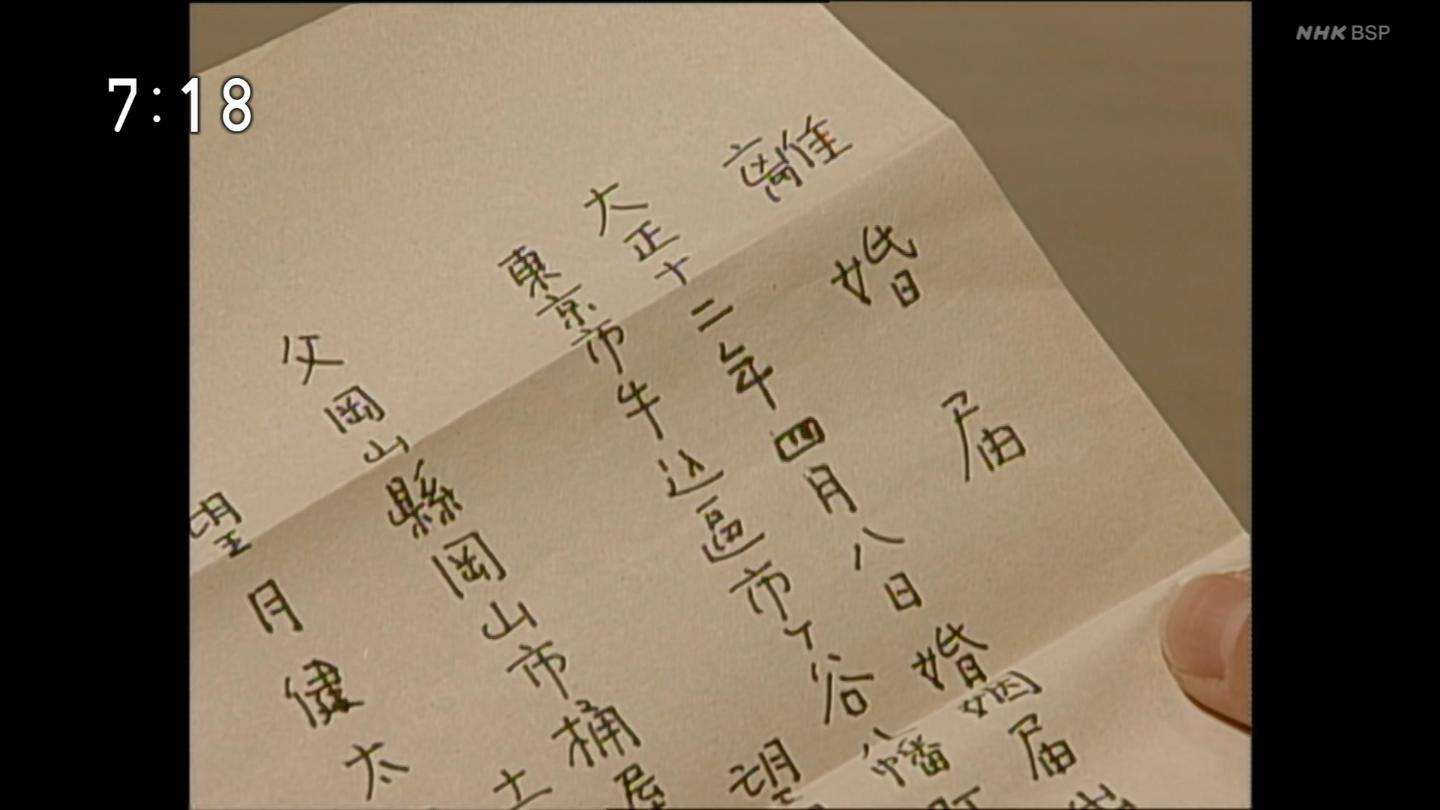 7:18
NHK BSP
離婚届
大正十二年四月八日婚姻届
東京市牛込區市ヶ谷八幡町
望
父岡山縣岡山市桶屋
士
望月健太